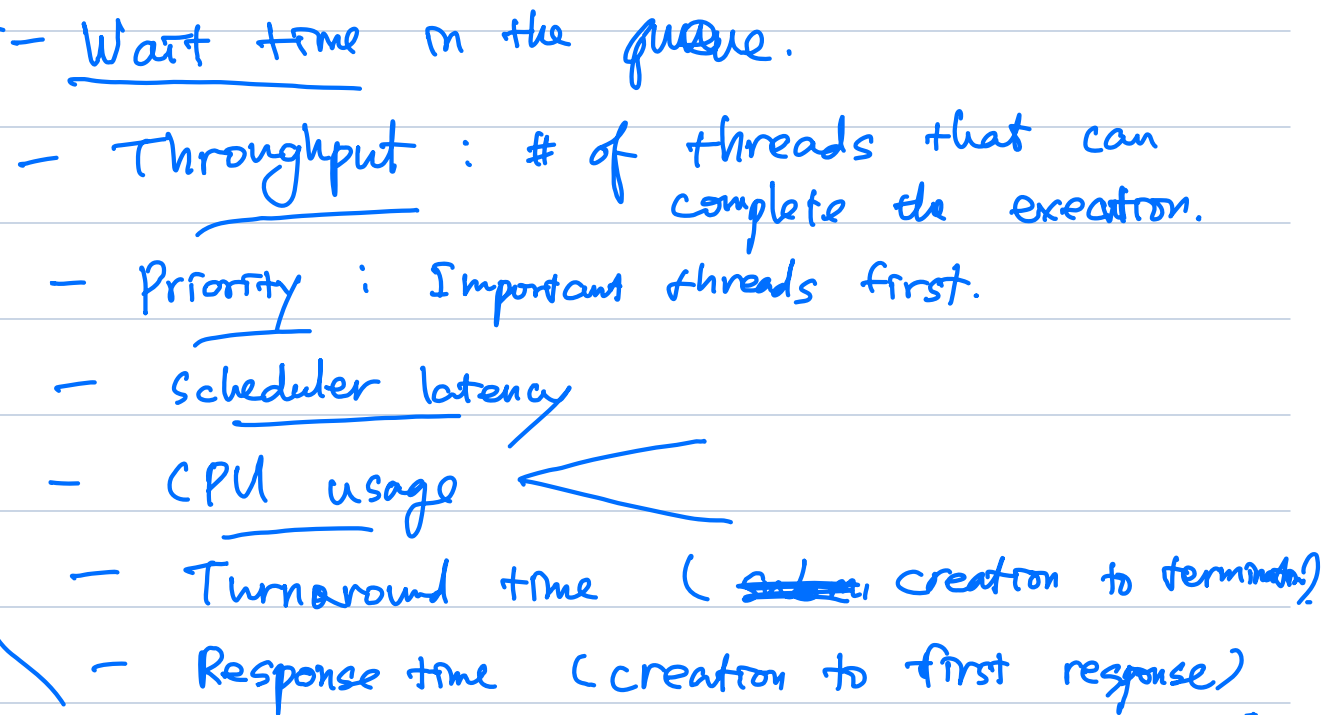 - Wait time in the queue.
- Throughput : # of threads that can
complete the execution.
- Priority : Important threads first.
- Scheduler latency
- CPU usage
- Turnaround time ( creation to termination)
- Response time (creation to first response)